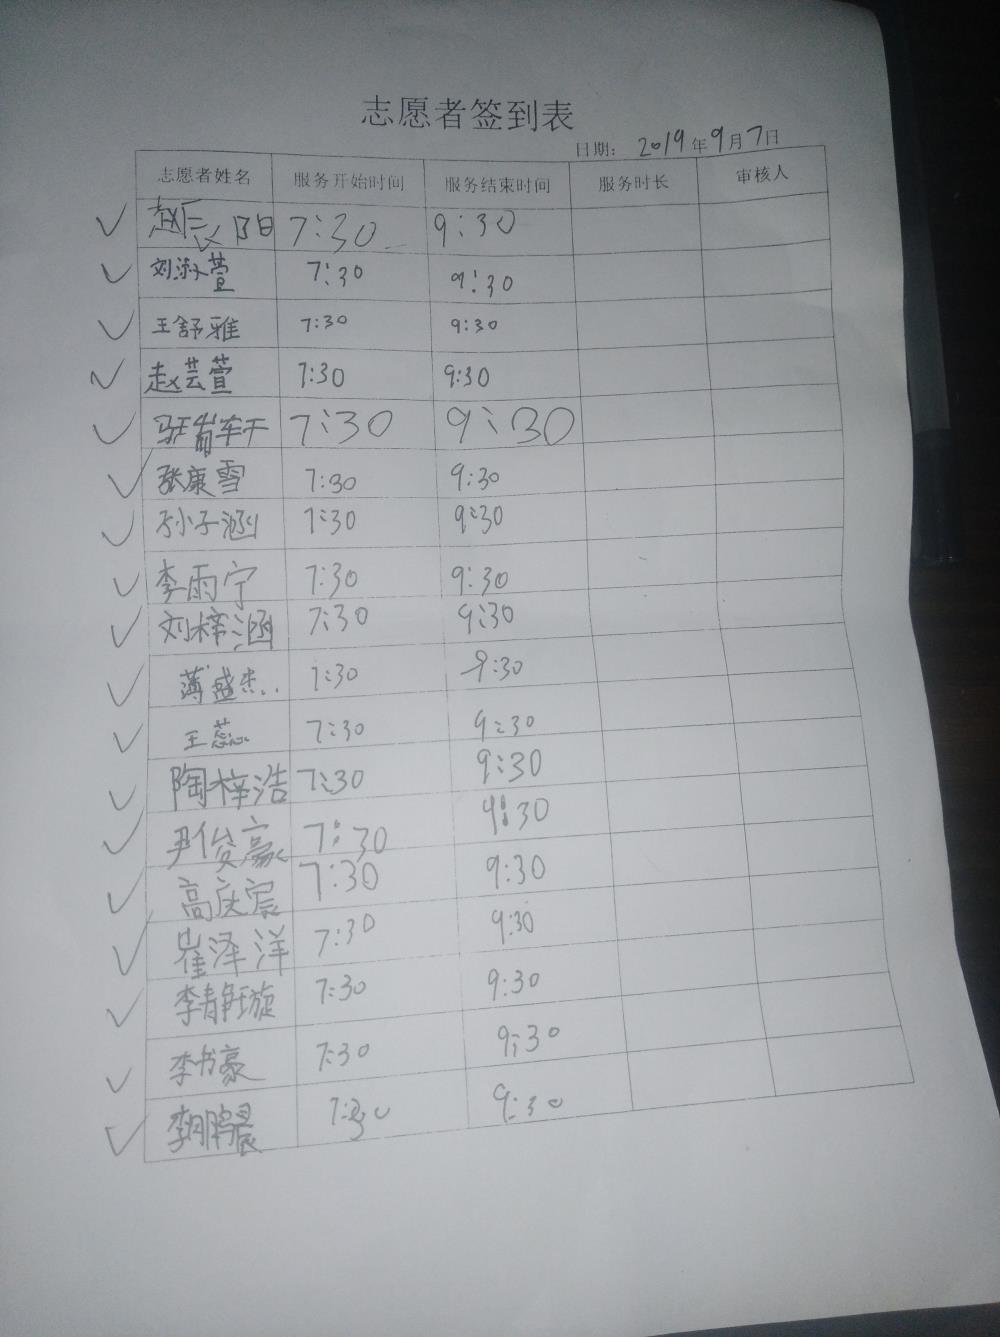 志愿者签到表
日期： 2019年9月7日
志愿者姓名 服务开始时间 服务结束时间 服务时长 审核人
赵辰阳 7:30 9:30
刘淑萱 7:30 9:30
王舒雅 7:30 9:30
赵芸萱 7:30 9:30
7:30 9:30
张康雪 7:30 9:30
孙子涵 7:30 9:30
李雨宁 7:30 9:30
刘梓涵 7:30 9:30
薄盛杰 7:30 9:30
王蕊 7:30 9:30
陶梓浩 7:30 9:30
尹俊豪 7:30 9:30
高庆宸 7:30 9:30
崔泽洋 7:30 9:30
李静璇 7:30 9:30
李书豪 7:30 9:30
李鹏晨 7:30 9:30